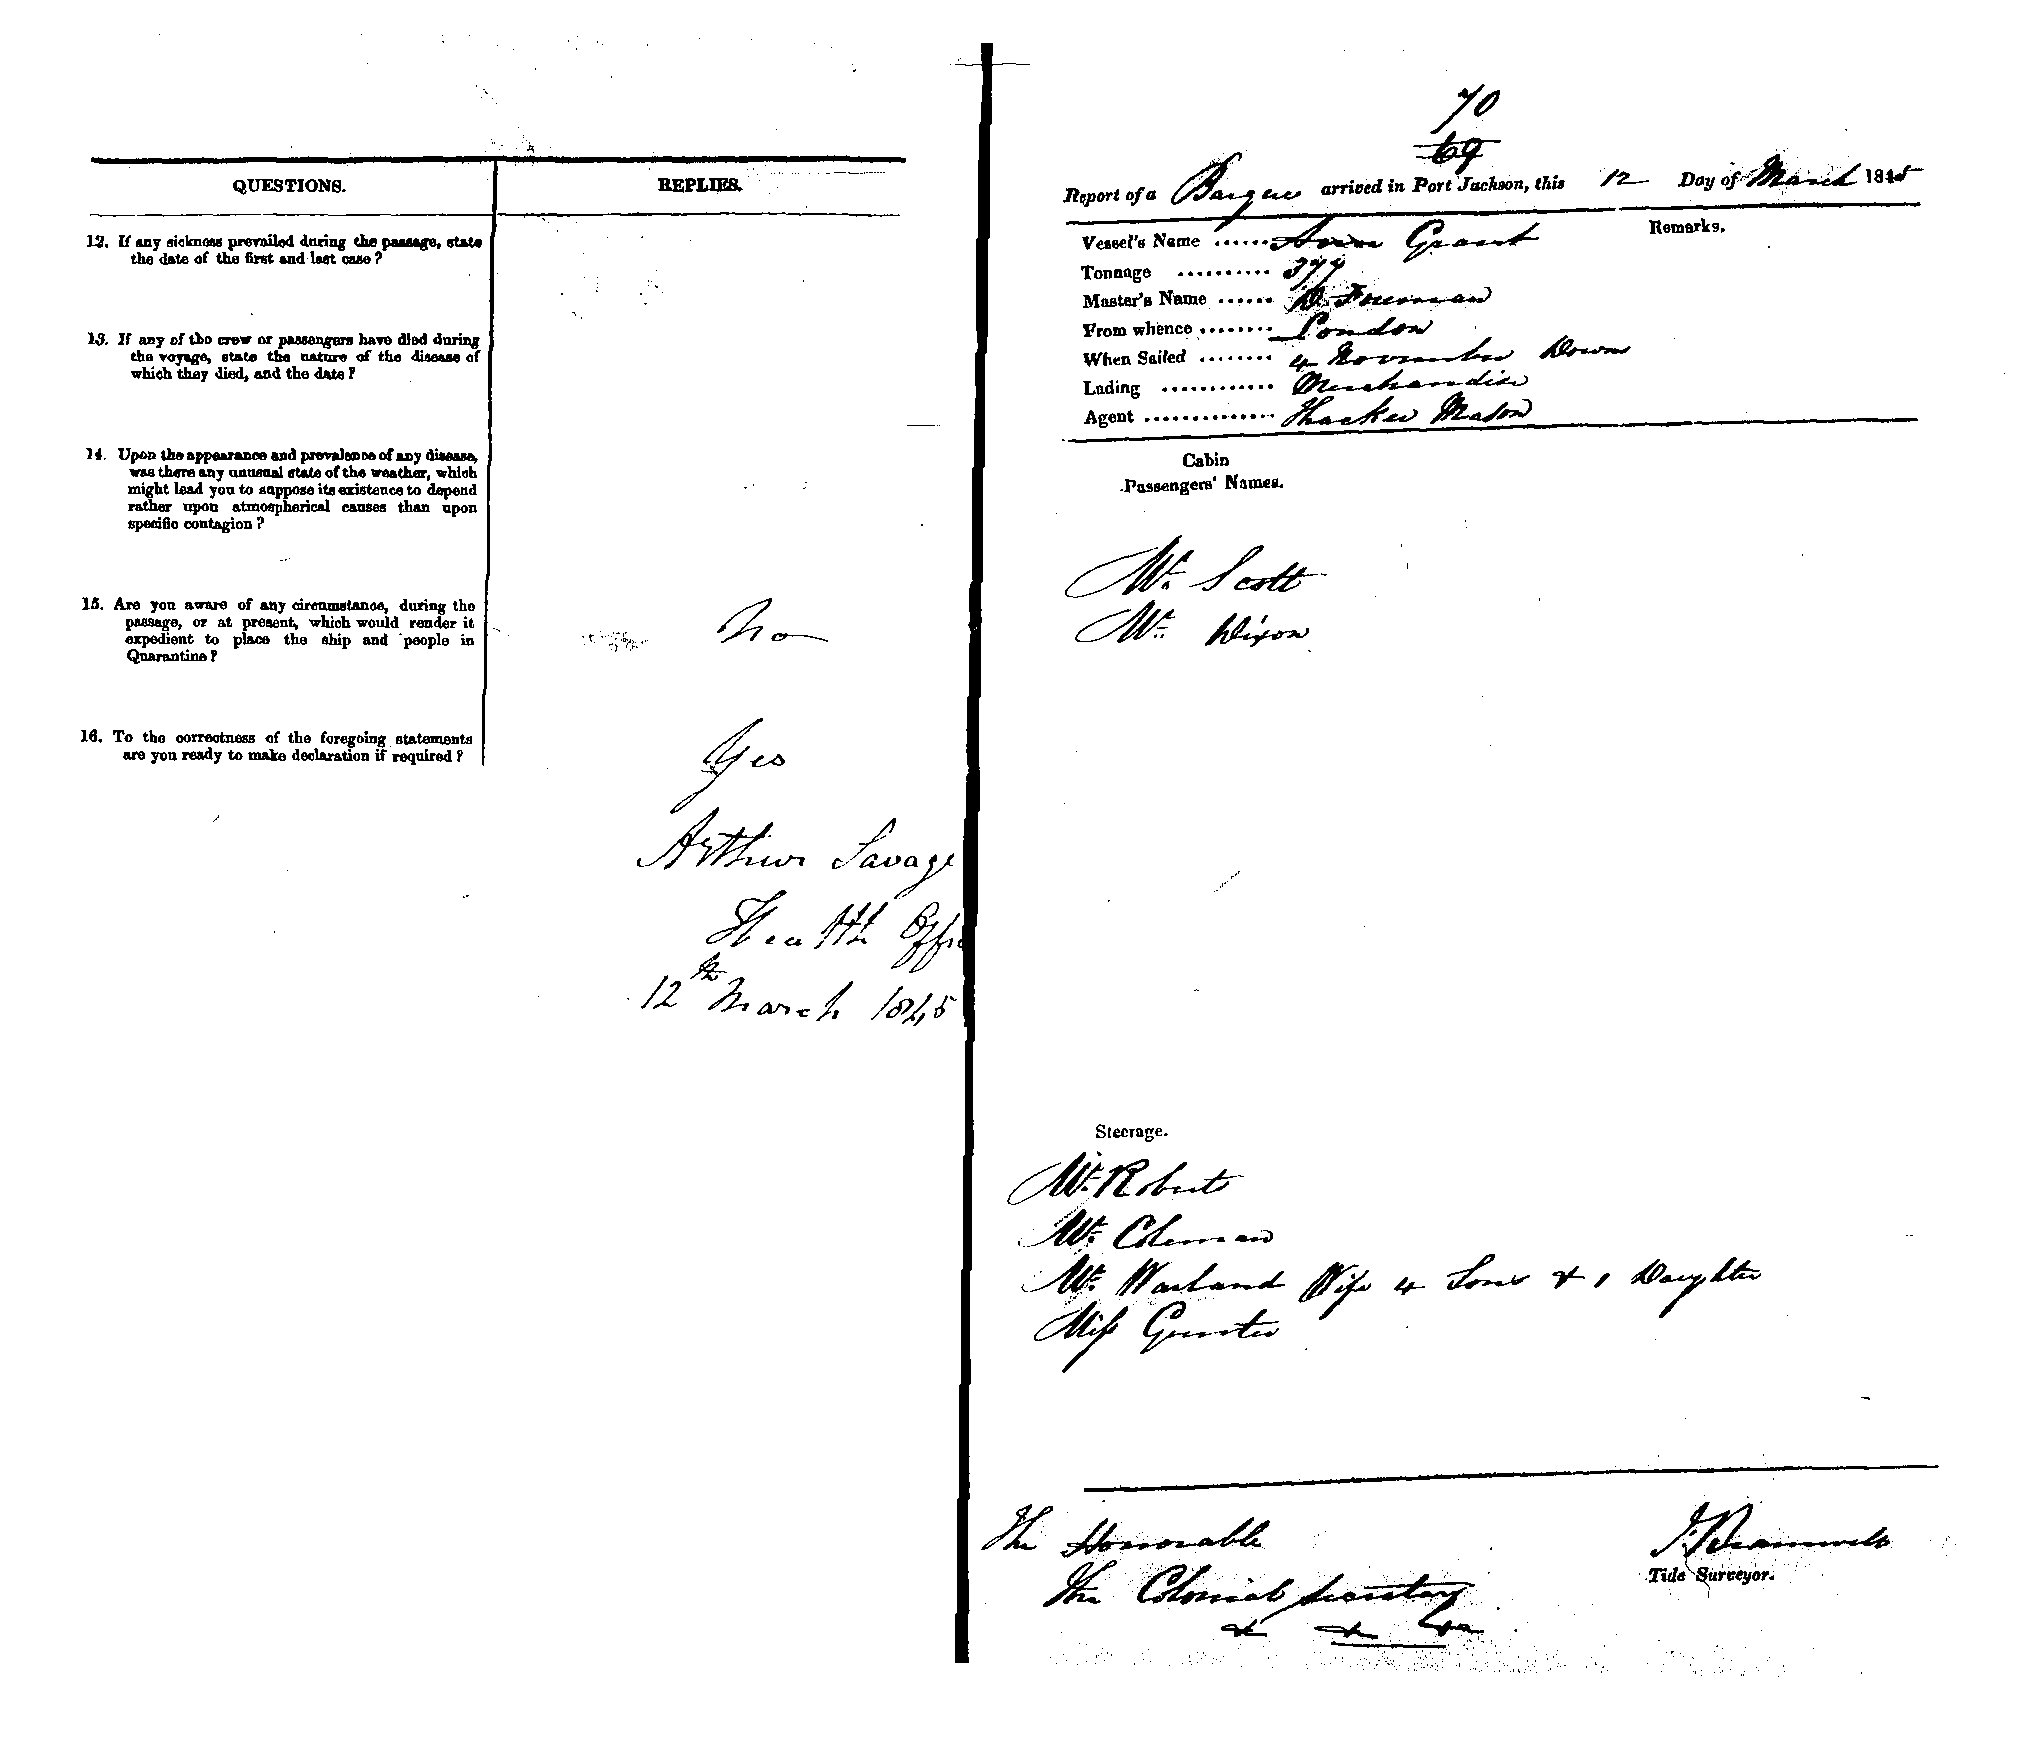 QUESTIONS.
REPLIES.
12. If any sickness prevailed during the passage, state
the date of the first and last case?
13. If any of the crew or passengers have died during
the voyage, state the nature of the disease of
which they died, and the date?
14. Upon the appearance and prevalence of any disease,
was there any unusual state of the weather, which
might lead you to suppose its existence to depend
rather upon atmospherical causes than upon
specific contagion?
15. Are you aware of any circumstance, during the
passage, or at present, which would render it
expedient to place the ship and people in
Quarantine?
No
16. To the correctness of the foregoing statements
are you ready to make declaration if required?
Yes
Arthur Savage
Health Offic
12th March 1845
70
69
Report of a Barque arrived in Port Jackson, this 12 Day of March 1845
Remarks.
Vessel's Name ...... Ann Grant
Tonnage .......... 377
Master's Name ...... D. Freeman
From whence ........ London
When Sailed ........ 4 November Downs
Lading ............ Merchandise
Agent .............. Thacker Mason
Cabin
Passengers' Names.
Mr. Scott
Mr. Dixon
Steerage.
Mr. Robert
Mr. Coleman
Mr. Warland Wife 4 Sons & 1 Daughter
Miss Gunter
The Honorable
The Colonial Secretary
& & &c
J. Bramwell
Tide Surveyor.